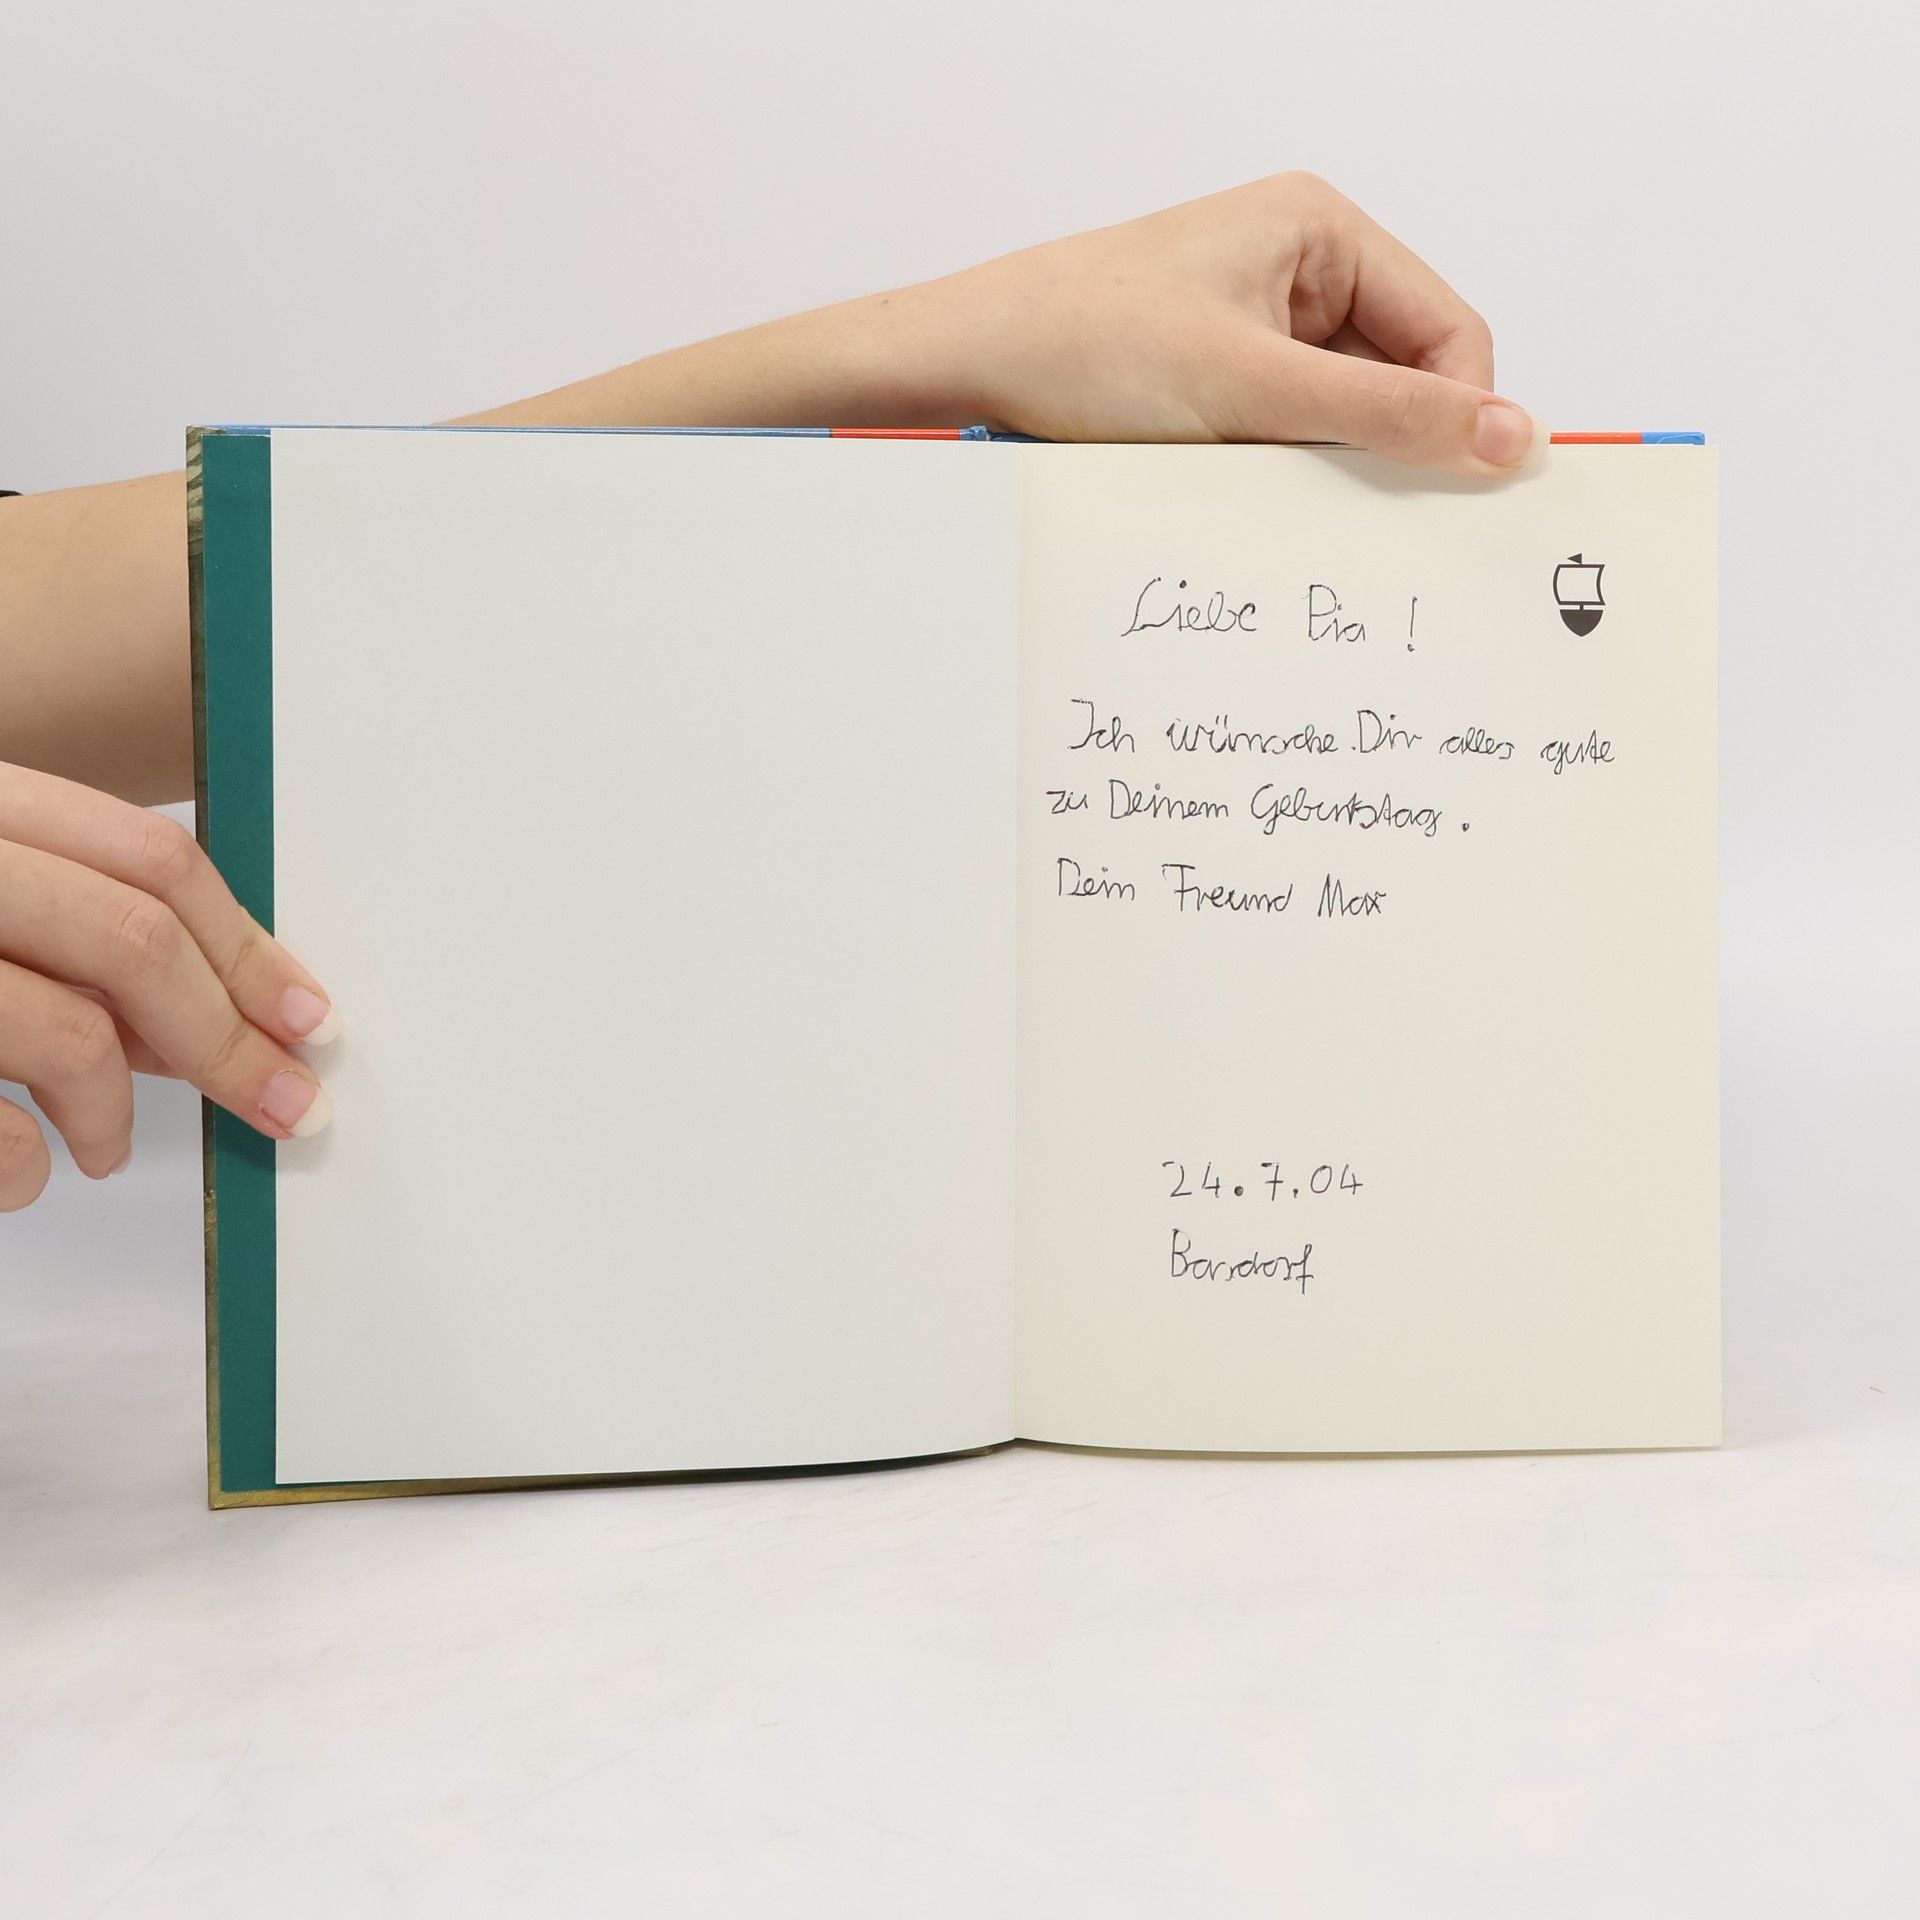 Liebe Pia !
Ich wünsche Dir alles gute
zu Deinem Geburtstag.
Dein Freund Max
24.7.04
Barsdorf